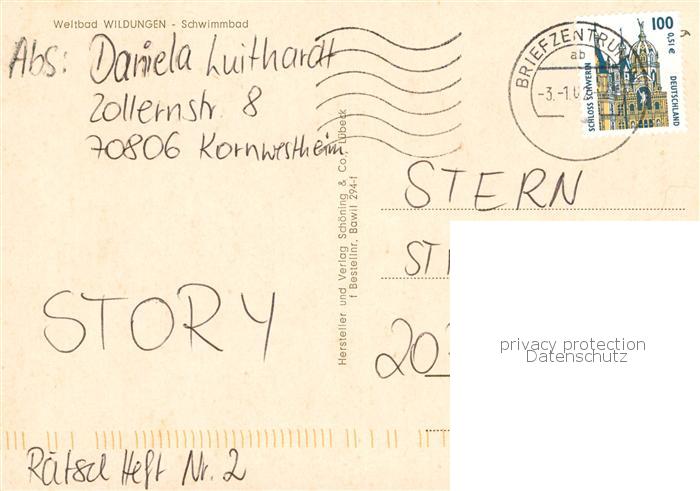 Weltbad WILDUNGEN - Schwimmbad
Abs: Daniela Luithardt
Zollernstr. 8
70806 Kornwestheim
Hersteller und Verlag Schöning & Co., Lübeck
f Bestellnr. Bawil 294-f
BRIEFZENTRUM
ab
-3.-1.0
100
0,51€
SCHLOSS SCHWERIN
DEUTSCHLAND
STERN
ST
20
STORY
Rätsel Heft Nr. 2
privacy protection
Datenschutz